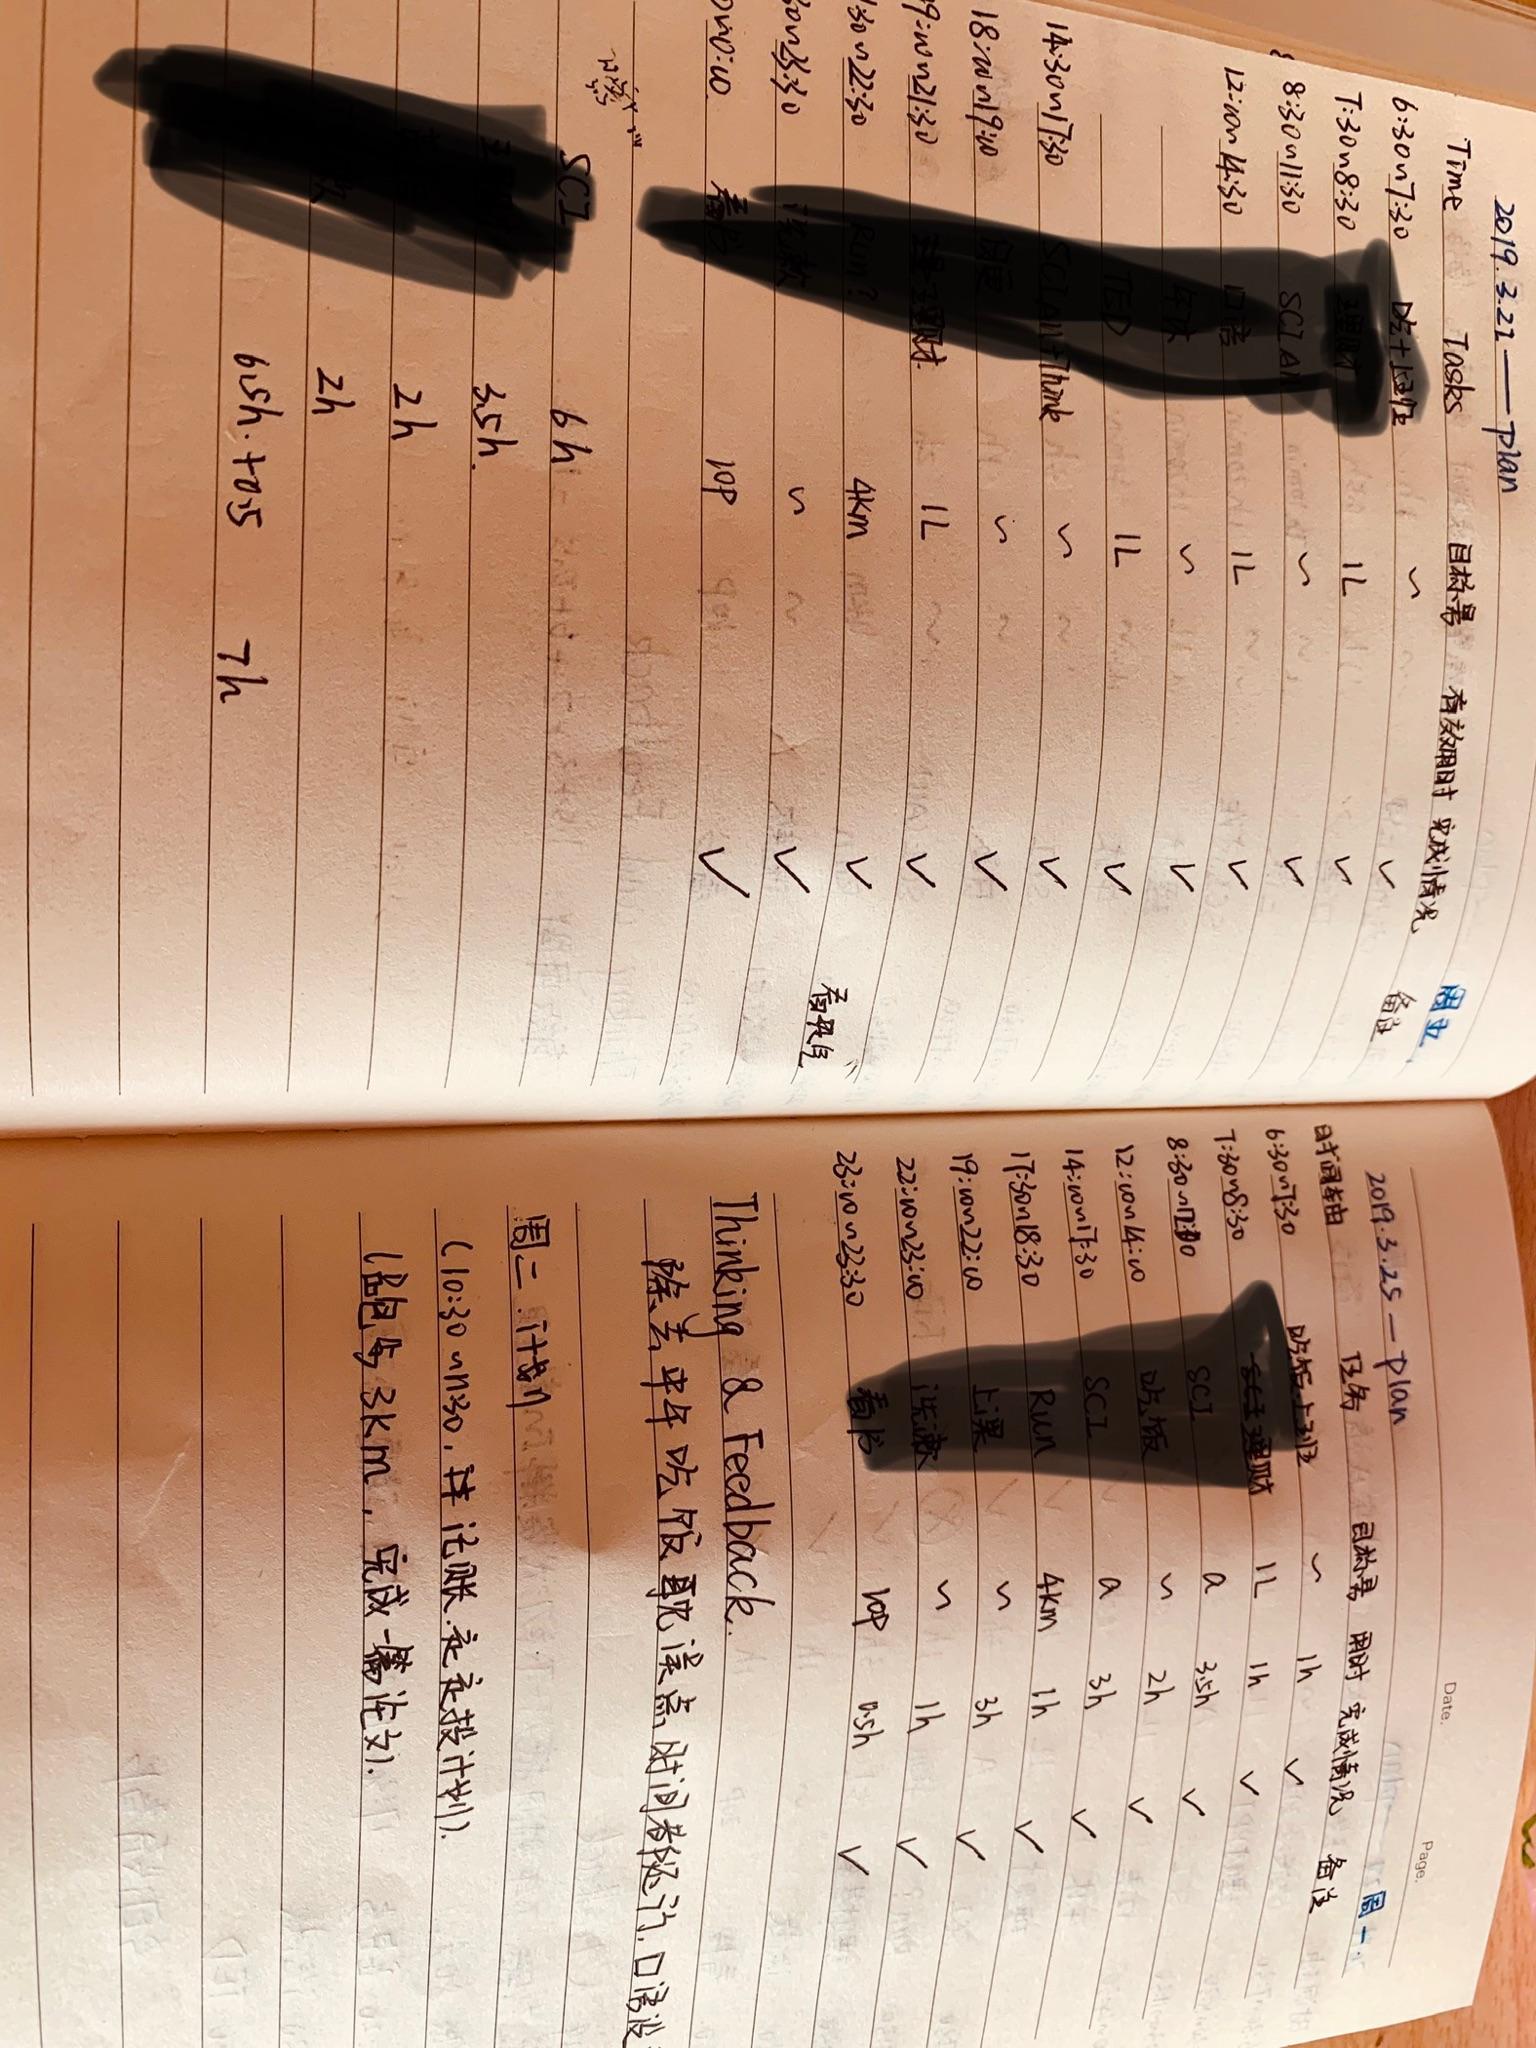 2019.3.22——Plan
周五
Time Tasks 目标量 有效用时 完成情况 备注
6:30~7:30 吃+上班 ~ ✓
7:30~8:30 理财 1L ✓
8:30~11:30 SCI AN ~ ✓
12:00~14:30 口语 1L ✓
午休 ~ ✓
TED 1L ✓
14:30~17:30 SCI AN+Think ~ ✓
18:00~19:00 ~ ✓
9:00~21:30 理财 1L ✓
:30~22:30 Run? 4km ✓
30~23:30 洗漱 ~ ✓ 有提色
0~0:00 看书 10P ✓
SCI 6h
3.5h.
2h
2h
6.5h.+0.5 7h
Date. Page.
2019.3.25—Plan 周一
时间轴 任务 目标量 用时 完成情况 备注
6:30~7:30 吃饭上班 ~ 1h ✓
7:30~8:30 理财 1L 1h ✓
8:30~12:00 SCI a 3.5h ✓
12:00~14:00 吃饭 ~ 2h ✓
14:00~17:30 SCI a 3h ✓
17:30~18:30 Run 4km 1h ✓
19:00~22:00 上课 ~ 3h ✓
22:00~23:00 洗漱 ~ 1h ✓
23:00~23:30 看书 10P 0.5h ✓
Thinking & Feedback.
除去中午吃饭耽误点时间看极订,口语没
周二.计划
(10:30~11:30,并记账.定定投计划).
(跑步3km,完成一篇论文).